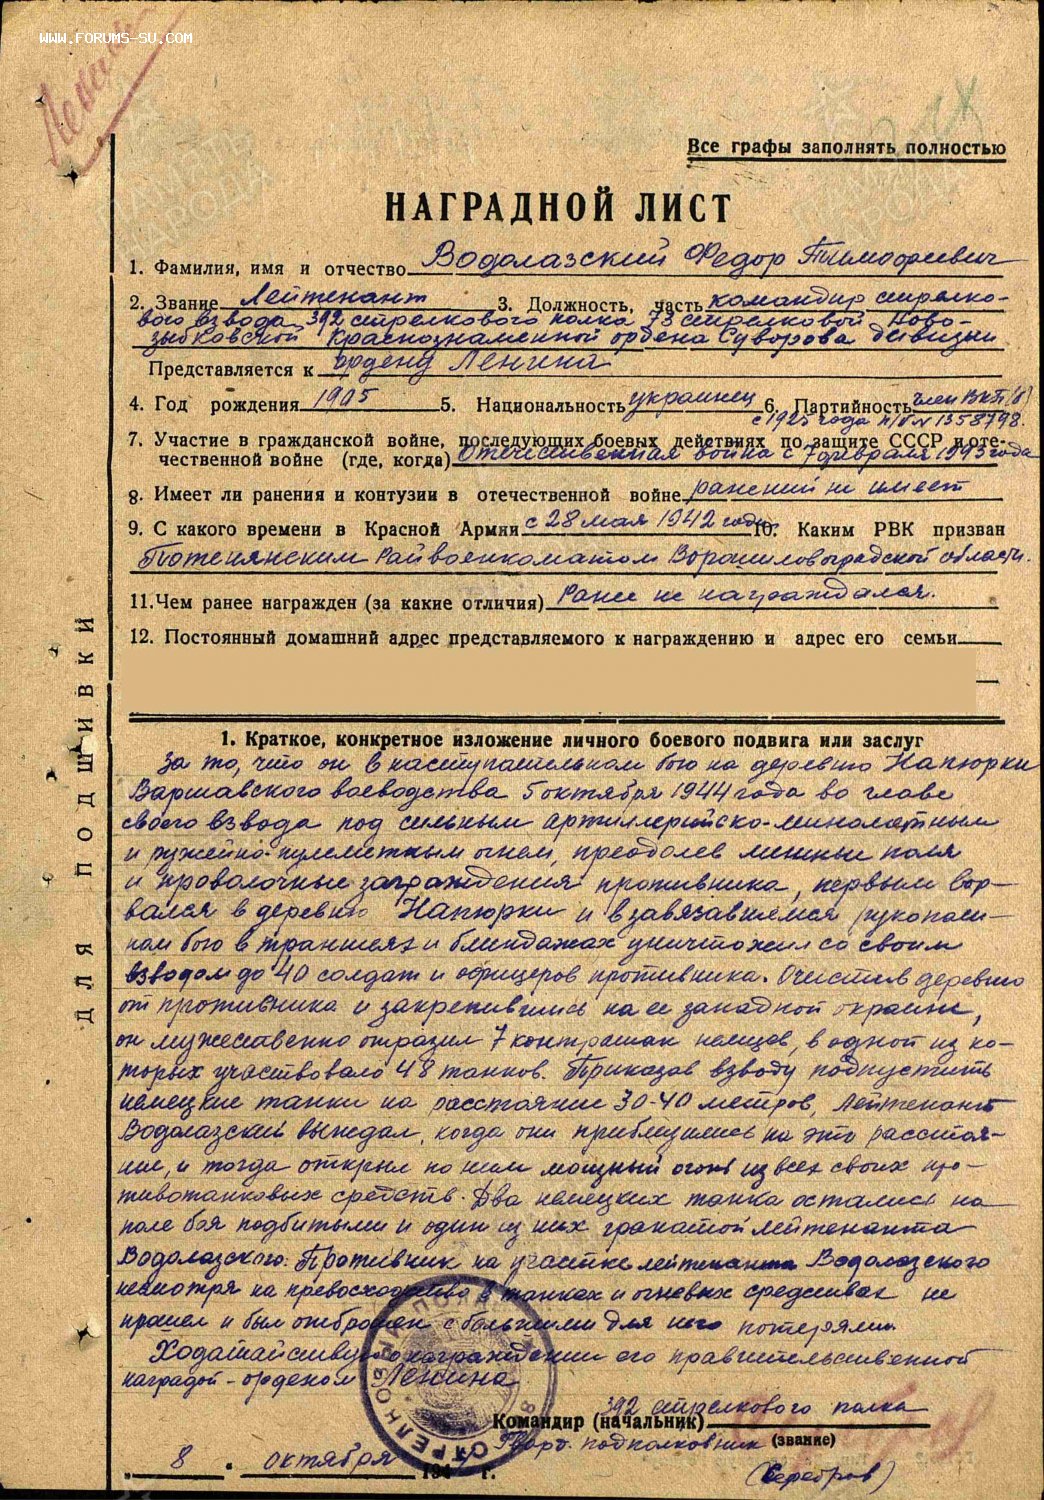 WWW.FORUMS-SU.COM
Все графы заполнять полностью
НАГРАДНОЙ ЛИСТ
1. Фамилия, имя и отчество Водолазский Федор Тимофеевич
2. Звание Лейтенант 3. Должность, часть командир стрелко-
вого взвода 392 стрелкового полка 73 стрелковой Ново-
зыбковской Краснознаменной ордена Суворова дивизии
Представляется к ордену Ленина
4. Год рождения 1905 5. Национальность украинец 6. Партийность член ВКП(б)
с 1925 года п/б № 1358798.
7. Участие в гражданской войне, последующих боевых действиях по защите СССР и оте-
чественной войне (где, когда) Отечественная война с 7 февраля 1943 года
8. Имеет ли ранения и контузии в отечественной войне ранений не имеет
9. С какого времени в Красной Армии с 28 мая 1942 года 10. Каким РВК призван
Райвоенкоматом Ворошиловградской области.
11. Чем ранее награжден (за какие отличия) Ранее не награждался.
12. Постоянный домашний адрес представляемого к награждению и адрес его семьи
ДЛЯ ПОДШИВКИ
1. Краткое, конкретное изложение личного боевого подвига или заслуг
За то, что он в наступательном бою на деревню Напюрки
Варшавского воеводства 5 октября 1944 года во главе
своего взвода под сильным артиллерийско-минометным
и ружейно-пулеметным огнем, преодолев минные поля
и проволочные заграждения противника, первым вор-
вался в деревню Напюрки и в завязавшемся рукопаш-
ном бою в траншеях и блиндажах уничтожил со своим
взводом до 40 солдат и офицеров противника. Очистив деревню
от противника и закрепившись на ее западной окраине,
он мужественно отразил 7 контратак немцев, в одной из ко-
торых участвовало 48 танков. Приказав взводу подпустить
немецкие танки на расстояние 30-40 метров, лейтенант
Водолазский выждал, когда они приблизились на это расстоя-
ние, и тогда открыл по ним мощный огонь из всех своих про-
тивотанковых средств. Два немецких танка остались на
поле боя подбитыми и один из них гранатой лейтенанта
Водолазского. Противник на участке лейтенанта Водолазского
несмотря на превосходство в танках и огневых средствах не
прошел и был отброшен с большими для него потерями.
Ходатайствую о награждении его правительственной
наградой - орденом Ленина
392 стрелкового полка
Командир (начальник)
Гвард. подполковник (звание)
(Серебров)
8 октября 194 г.